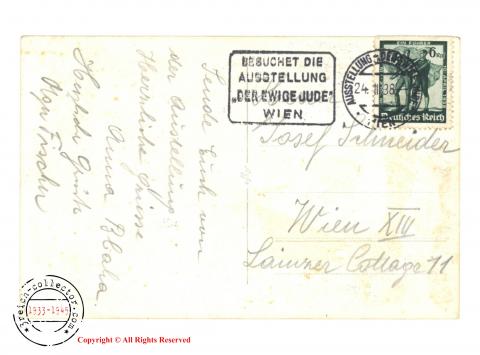 BESUCHET DIE
AUSSTELLUNG
„DER EWIGE JUDE"
WIEN
AUSSTELLUNG
24.
38
WIEN
EIN FÜHRER
6
Deutsches Reich
Sende Euch von
der Ausstellung
Herrliche Grüsse
Anna Blaha.
Herzliche Grüße
Olga Fischer
Josef Schneider
Wien XIII
Lainzer Cottage 11
3reich-collector.com
1933-1945
Copyright © All Rights Reserved